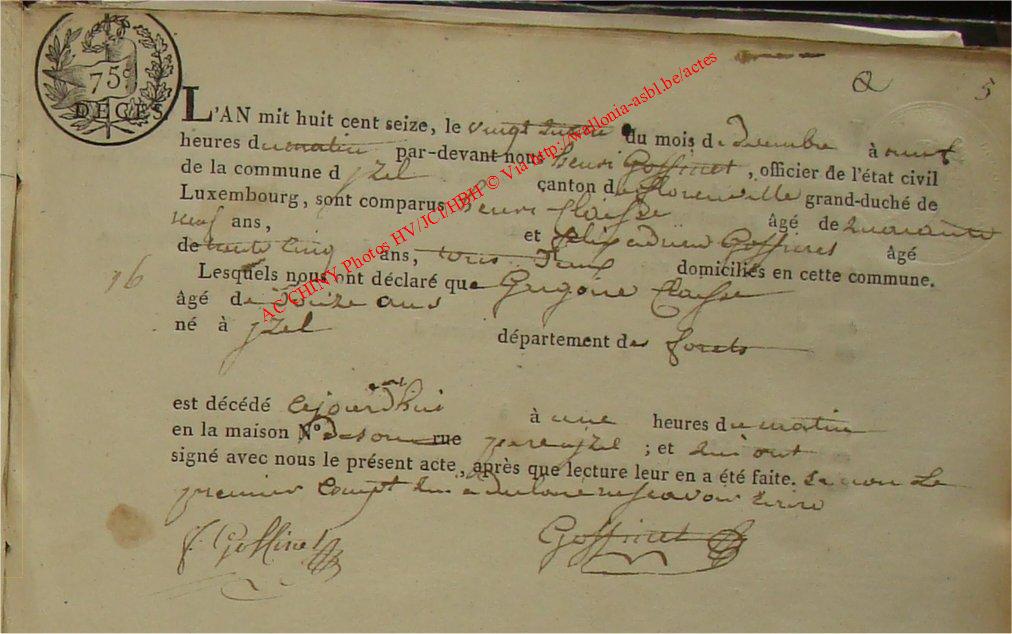 75c
DECES
2
5
L'AN mit huit cent seize, le vingt du mois de decembre à neuf
heures du matin par-devant nous henri Goffinet, officier de l'état civil
de la commune d jzel canton de florenville grand-duché de
Luxembourg, sont comparus henri Claisse âgé de Quarante
neuf ans, et Goffinet âgé
de cinq ans, tous deux domiciliés en cette commune.
16
Lesquels nous ont déclaré que Grigoire Claisse
âgé de ans
né à jzel département des forets
est décédé cejourd'hui à une heures du matin
en la maison No de son rue jzel ; et qui ont
signé avec nous le présent acte, après que lecture leur en a été faite. Le
premier Compt qui a declaré ne scavoir Ecrire
f. Goffinet
Goffinet
AC CHINY Photos HV/JCI/HBH © Via http://wallonia-asbl.be/actes